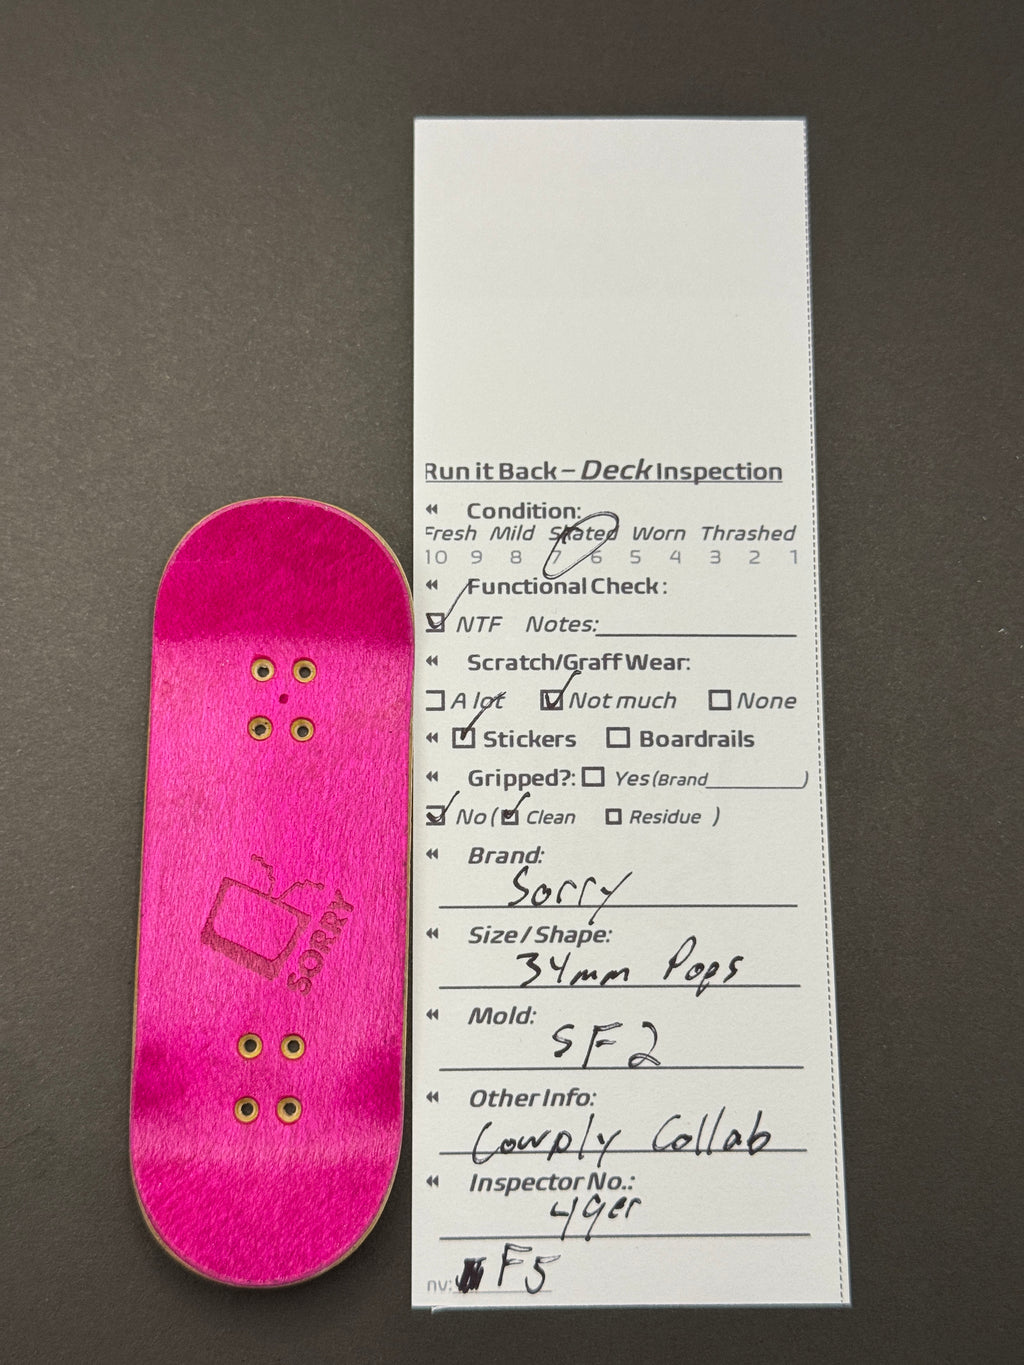 Run it Back – Deck Inspection
Condition:
Fresh Mild Skated Worn Thrashed
10 9 8 7 6 5 4 3 2 1
Functional Check:
NTF Notes:
Scratch/Graff Wear:
A lot Not much None
Stickers Boardrails
Gripped?: Yes (Brand )
No ( Clean Residue )
Brand:
Sorry
Size / Shape:
34mm Pops
Mold:
SF2
Other Info:
Lowply Collab
Inspector No.:
49er
nv: F5
SORRY